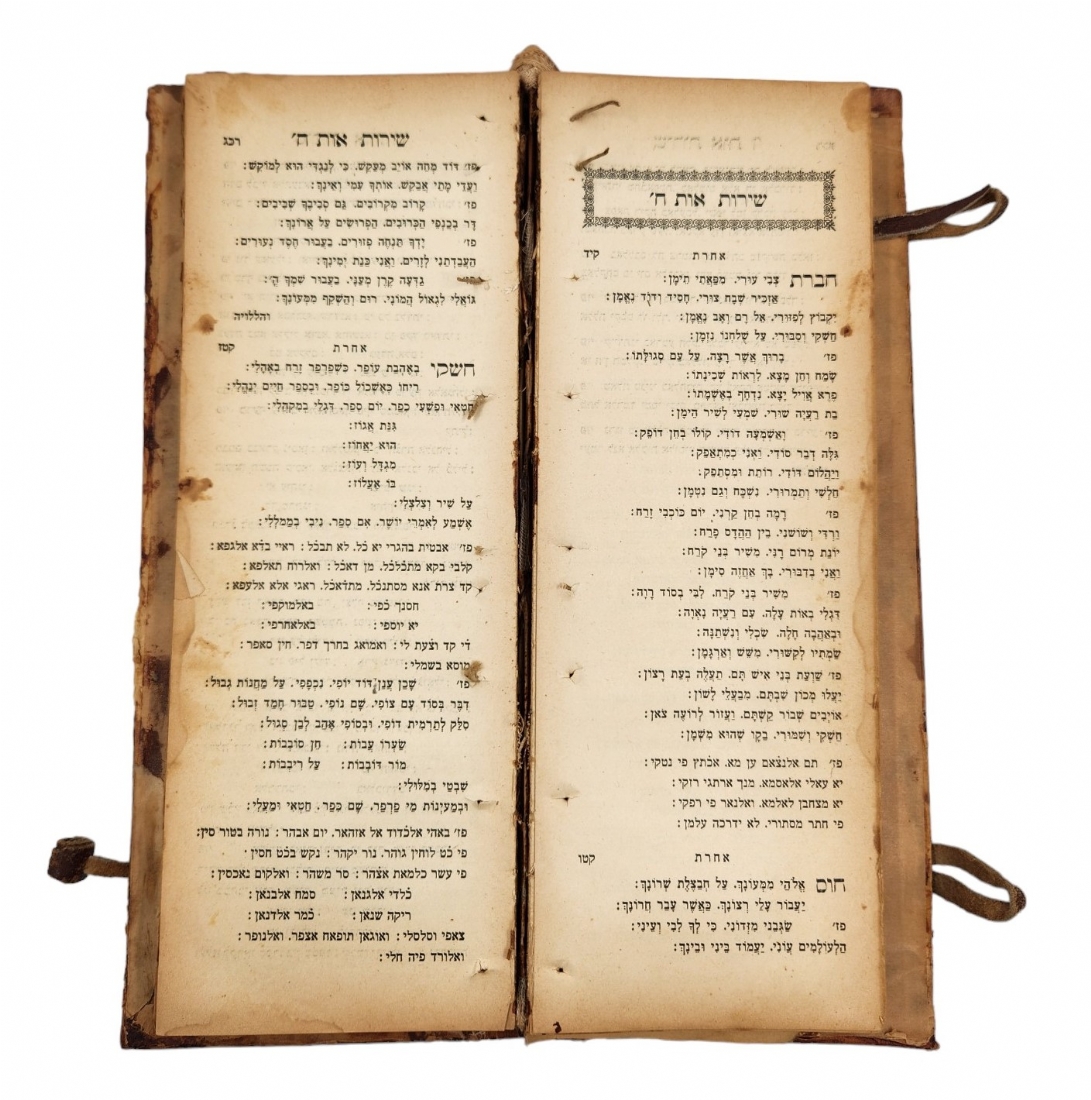 שירות אות ח׳
אחרת קיד
חברת צבי עורי. מפאתי תימן:
אזכיר שבח צורי. חסיד ודוד נאמן:
יקבוץ לפזורי. אל רם ואב נאמן:
חשקי וסבורי. על שלחנו נזמן:
פז׳ ברוך אשר רצה. על עם סגולתו:
שמח וחן מצא. לראות שכינתו:
פרא אויל יצא. נדחף באשמתו:
בת רעיה שורי. שמעי לשיר הימן:
פז׳ ואשמעה דודי. קולו בחן דופק:
גלה דבר סודי. ואני כמתאפק:
ויהלום דודי. רותת ומסתפק:
חלשי ותמרורי. נשכח וגם נטמן:
פז׳ רמה בחן קרני. יום כוכבי זרח:
ורדי ושושני. בין ההדס פרח:
יונת מרום רני. משיר בני קרח:
ואני בדבורי. בך אחזה סימן:
פז׳ משיר בני קרח. לבי בסוד רוה:
דגלי באות עלה. עם רעיה נאוה:
ובאהבה חלה. שכלי ונשתנה:
שמתיו לקשורי. משש וארגמן:
פז׳ שועת בני איש תם. תעלה בעת רצון:
יעלו מכון שבתם. מבעלי לשון:
אויבים שבור קשתם. ויעזור לרועה צאן:
חשקי ושמורי. בקו שהוא משמן:
פז׳ תם אלנצׄאם ען מא. אכתץ פי נטקי:
יא עאלי אלאסמא. מנך ארתגי רזקי:
יא מצחבן לאלמא. ואלנאר פי רפקי:
פי חתר מסתורי. לא ידרכה עלמן:
אחרת קטו
חוס אלהי ממעונך. על חבצלת שרונך:
יעבור עלי רצונך. כאשר עבר חרונך:
פז׳ שגבני מזדוני. כי לך לבי ועיני:
הלעולמים עוני. יעמוד ביני ובינך:
שירות אות ח׳ רכג
פז׳ דוד מחה אויב מעקש. כי לנגדי הוא למוקש:
ועדי מתי אבקש. אותך עמי ואינך:
פז׳ קרוב מקרובים. גם סביבך שביבים:
דר בכנפי הכרובים. הפרושים על ארונך:
פז׳ ידך תנחה פזורים. בעבור חסד נעורים:
העבדתני לזרים. ואני כנת ימינך:
גדעה קרן מעני. בעבור שמך ה׳:
גואלי לגאול המוני. רום והשקף ממעונך:
והללויה
אחרת קטז
חשקי באהבת עופר. כשפרפר זרח באהלי:
ריחו כאשכול כופר. ובספר חיים ינהלי:
חטאי ופשעי כפר. יום ספר. דגלי במקהלי:
גנת אגוז:
הוא יאחוז:
מגדל ועוז:
בו אעלוז:
על שיר וצלצלי:
אשמע לאמרי יושר. אם ספר. ניבי במללי:
פז׳ אבטית בהגרי יא כׄל. לא תבכׄל: ראיי בדׄא אלגפא:
קלבי בקא מתכׄלכל. מן דאכׄל: ואלרוח תאלפא:
קד צרת אנא מסתנכׄל. מתדׄאכׄל. ראגי אלא אלעפא:
חסנך כׄפי: באלמוקפי:
יא יוספי: באלאחרפי:
די קד וצׄעת לי: ואמואג בחרך דפר. חין סאפר:
מוסא בשמלי:
פז׳ שכן ענן דוד יופי. נכספי. על מחנות גבול:
דבר בסוד עם צופי. שם נופי. טבור חמד זבול:
סלק לתרמית דופי. ובסופי אהב לבן סגול:
שערו עבות: חן סובבות:
מור דובבות: על ריבבות:
שבטי במלולי:
ובמעינות מי פרפר. שם כפר. חטאי ומעלי:
פז׳ באהי אלכׄדוד אל אזהאר. יום אבהר: נורה בטור סין:
פי כׄט לוחין גוהר. נור יקהר: נקש בכׄט חסין·
פי עשר כלמאת אצׄהר: סר משהר: ואלקום נאכסין:
כׄלדי אלגנאן: סמח אלבנאן:
ריקה שנאן: כׄמר אלדנאן:
צאפי וסלסלי: ואוגאן תופאח אצפר. ואלנופר:
ואלורד פיה חלי: